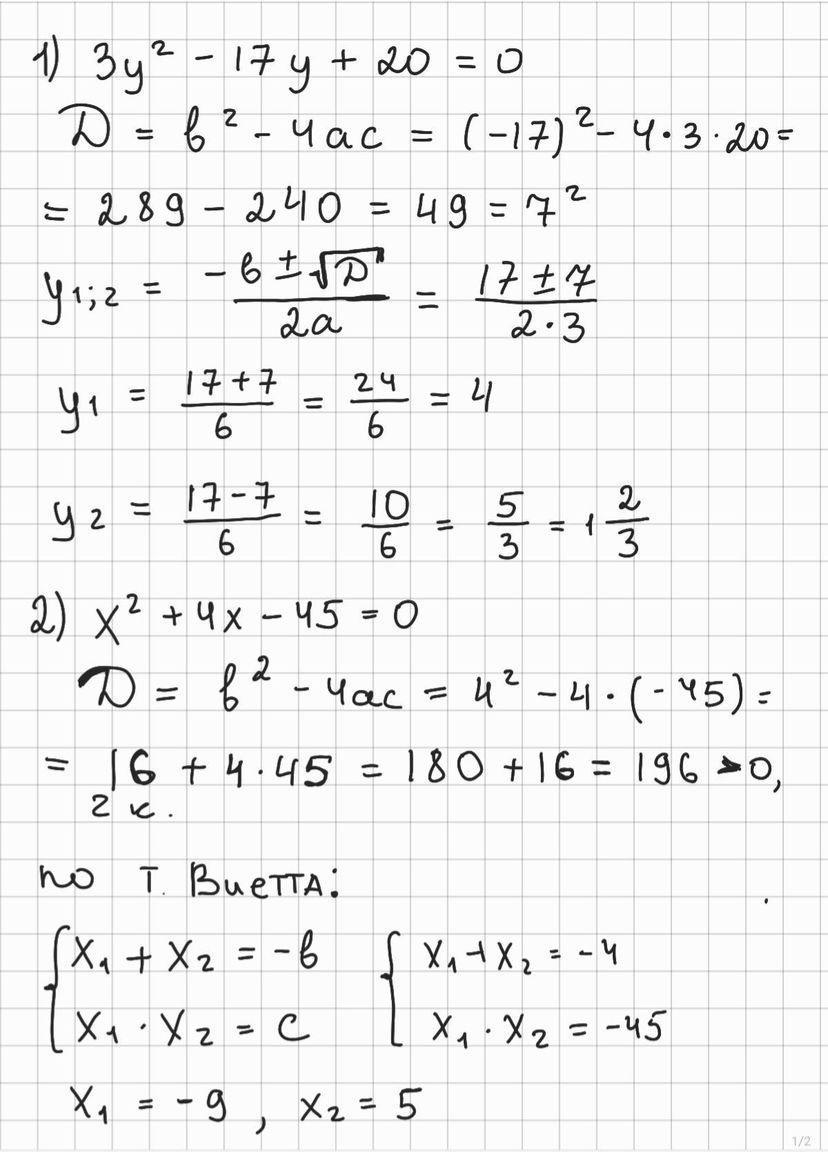 1) 3y² - 17y + 20 = 0
D = b² - 4ac = (-17)² - 4·3·20 =
= 289 - 240 = 49 = 7²
y1;2 = (-b ± √D)/(2a) = (17 ± 7)/(2·3)
y1 = (17+7)/6 = 24/6 = 4
y2 = (17-7)/6 = 10/6 = 5/3 = 1 2/3
2) x² + 4x - 45 = 0
D = b² - 4ac = 4² - 4·(-45) =
= 16 + 4·45 = 180 + 16 = 196 > 0,
2 к.
по т. Виетта:
{ x₁ + x₂ = -b { x₁ + x₂ = -4
{ x₁ · x₂ = c { x₁ · x₂ = -45
x₁ = -9, x₂ = 5
1/2